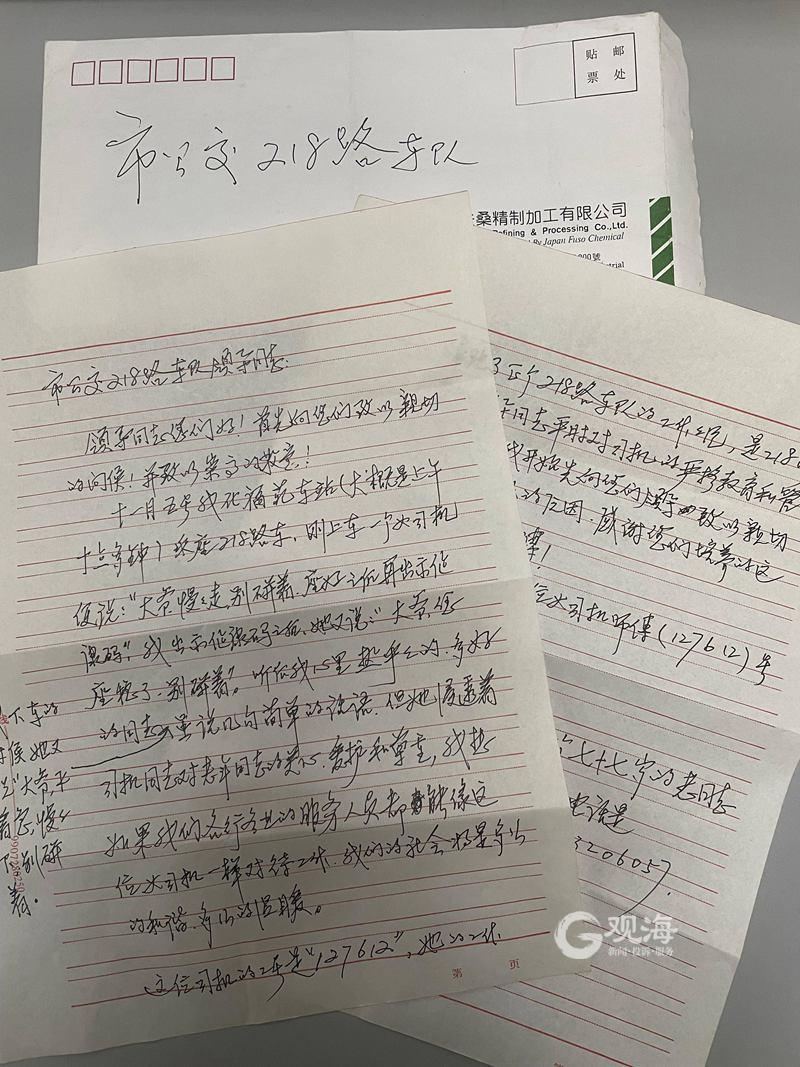 贴 邮
票 处
市公交218路车队
桑精制加工有限公司
efining & Processing Co.,Ltd.
By Japan Fuso Chemical
市公交218路车队领导同志:
领导同志您们好!首先向您们致以亲切
的问侯!并致以崇高的敬意!
十一月五号我在福苑车站(大概是上午
十点多钟)座218路车,刚上车一个女司机
便说:"大爷慢之走,别碰着.座好之后再出示健
康码",我出示健康码之后,她又说:"大爷您
座稳了,别碰着"。听后我心里热乎之的,多好
的同志,虽说几句简单的话语,但她渗透着
司机同志对老年同志的关心、爱护和尊重,我想
如果我们各行各业的服务人员都能像这
位女司机一样对待工作,我们的社会将是多么
的和谐,多么的温暖。
这位司机的工号是"127612",她的工作
我下车的
时侯她又
说"大爷不
着急慢之
下别碰
着.
第 页
了整个218路车队的工作,是218
同志平时对司机的严格教育和管
我开始先向您们领导致以亲切
的原因,感谢您们培养的这
位女司机师傅(127612)号
七十七岁的老同志
电话是
320605).
观海
新闻·投诉·服务